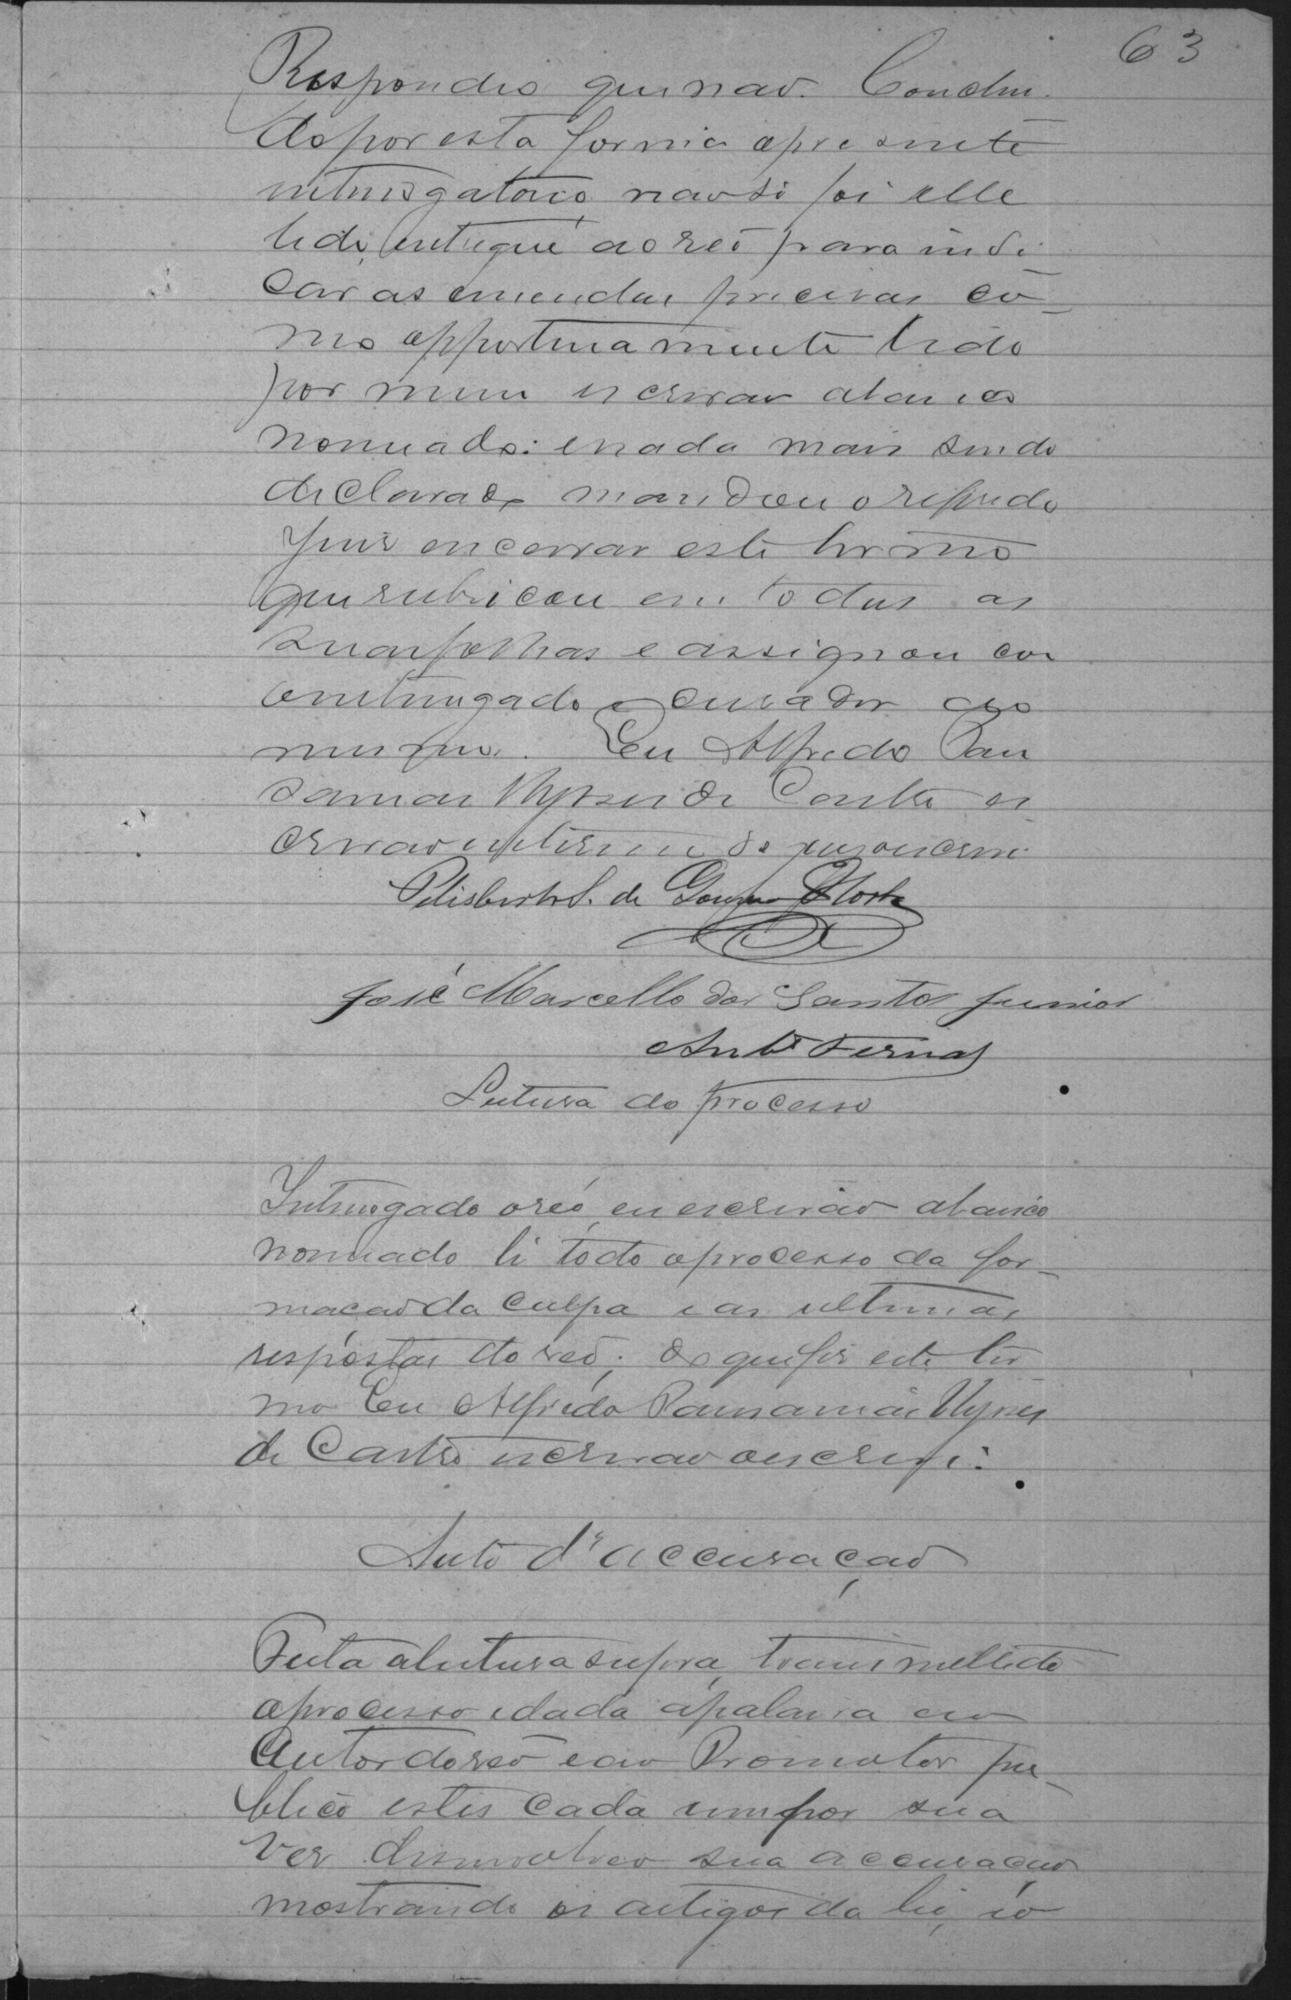 63
Respondeo que não. Conclui-
do por esta forma o presente
interrogatorio, nessa foi elle
lido, entregue ao reó para indi
car as emendas precisas co-
mo opportunamente lido
por mim escrivão abaixo
nomeado: e nada mais sendo
declarado mandou o referido
Juiz encerrar este termo
que rubricou em todas as
suas folhas e assignou com
o interrogado e curador ao
mesmo. Eu Alfredo Pau
de Castro es
crivão interino do jury o escrevi
Felisberto S. de Horta
José Marcello dos Santos Junior
Leitura do processo
Interrogado o reó, eu escrivão abaixo
nomeado li todo o processo da for-
mação da culpa e as ultimas
respostas do reó; do que fiz este ter
mo Eu Alfredo
de Castro escrivão o escrevi.
Auto d'accusação
Feita a leitura supra, transmettido
o processo e dada a palavra ao
Autor do reó e ao Promotor pu-
blico estes cada um por sua
vez desenvolveo sua accusação
mostrando os artigos da lei, e o